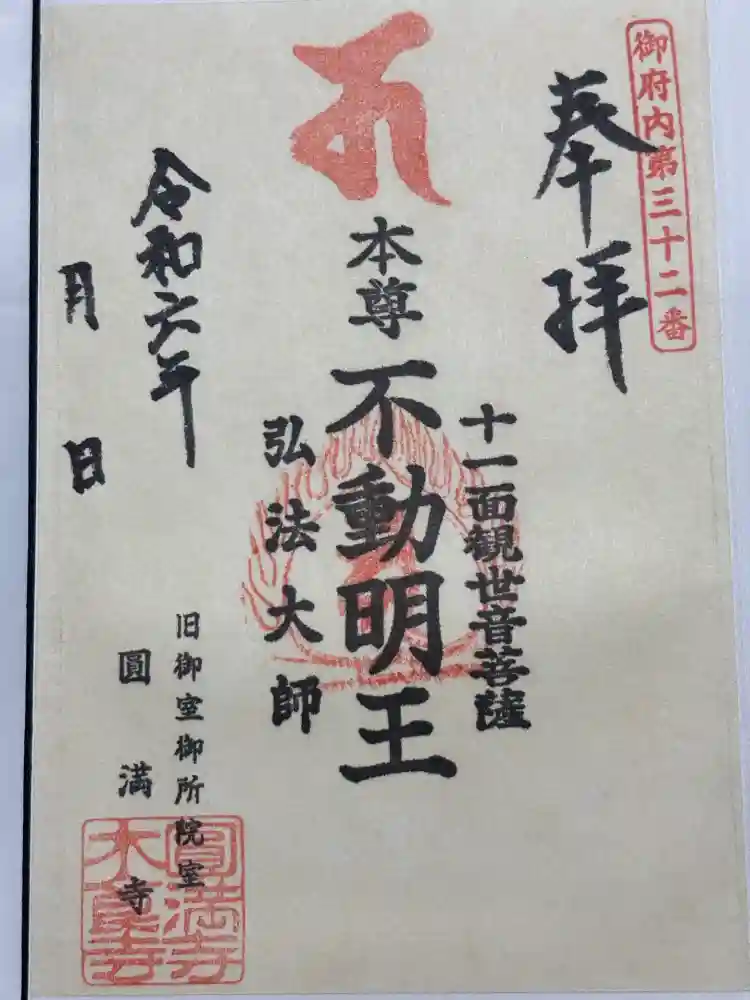 御府内第三十二番
奉拝
十一面観世音菩薩
本尊 不動明王
弘法大師
令和六年
月 日
旧御室御所院室
圓満寺
圓満寺